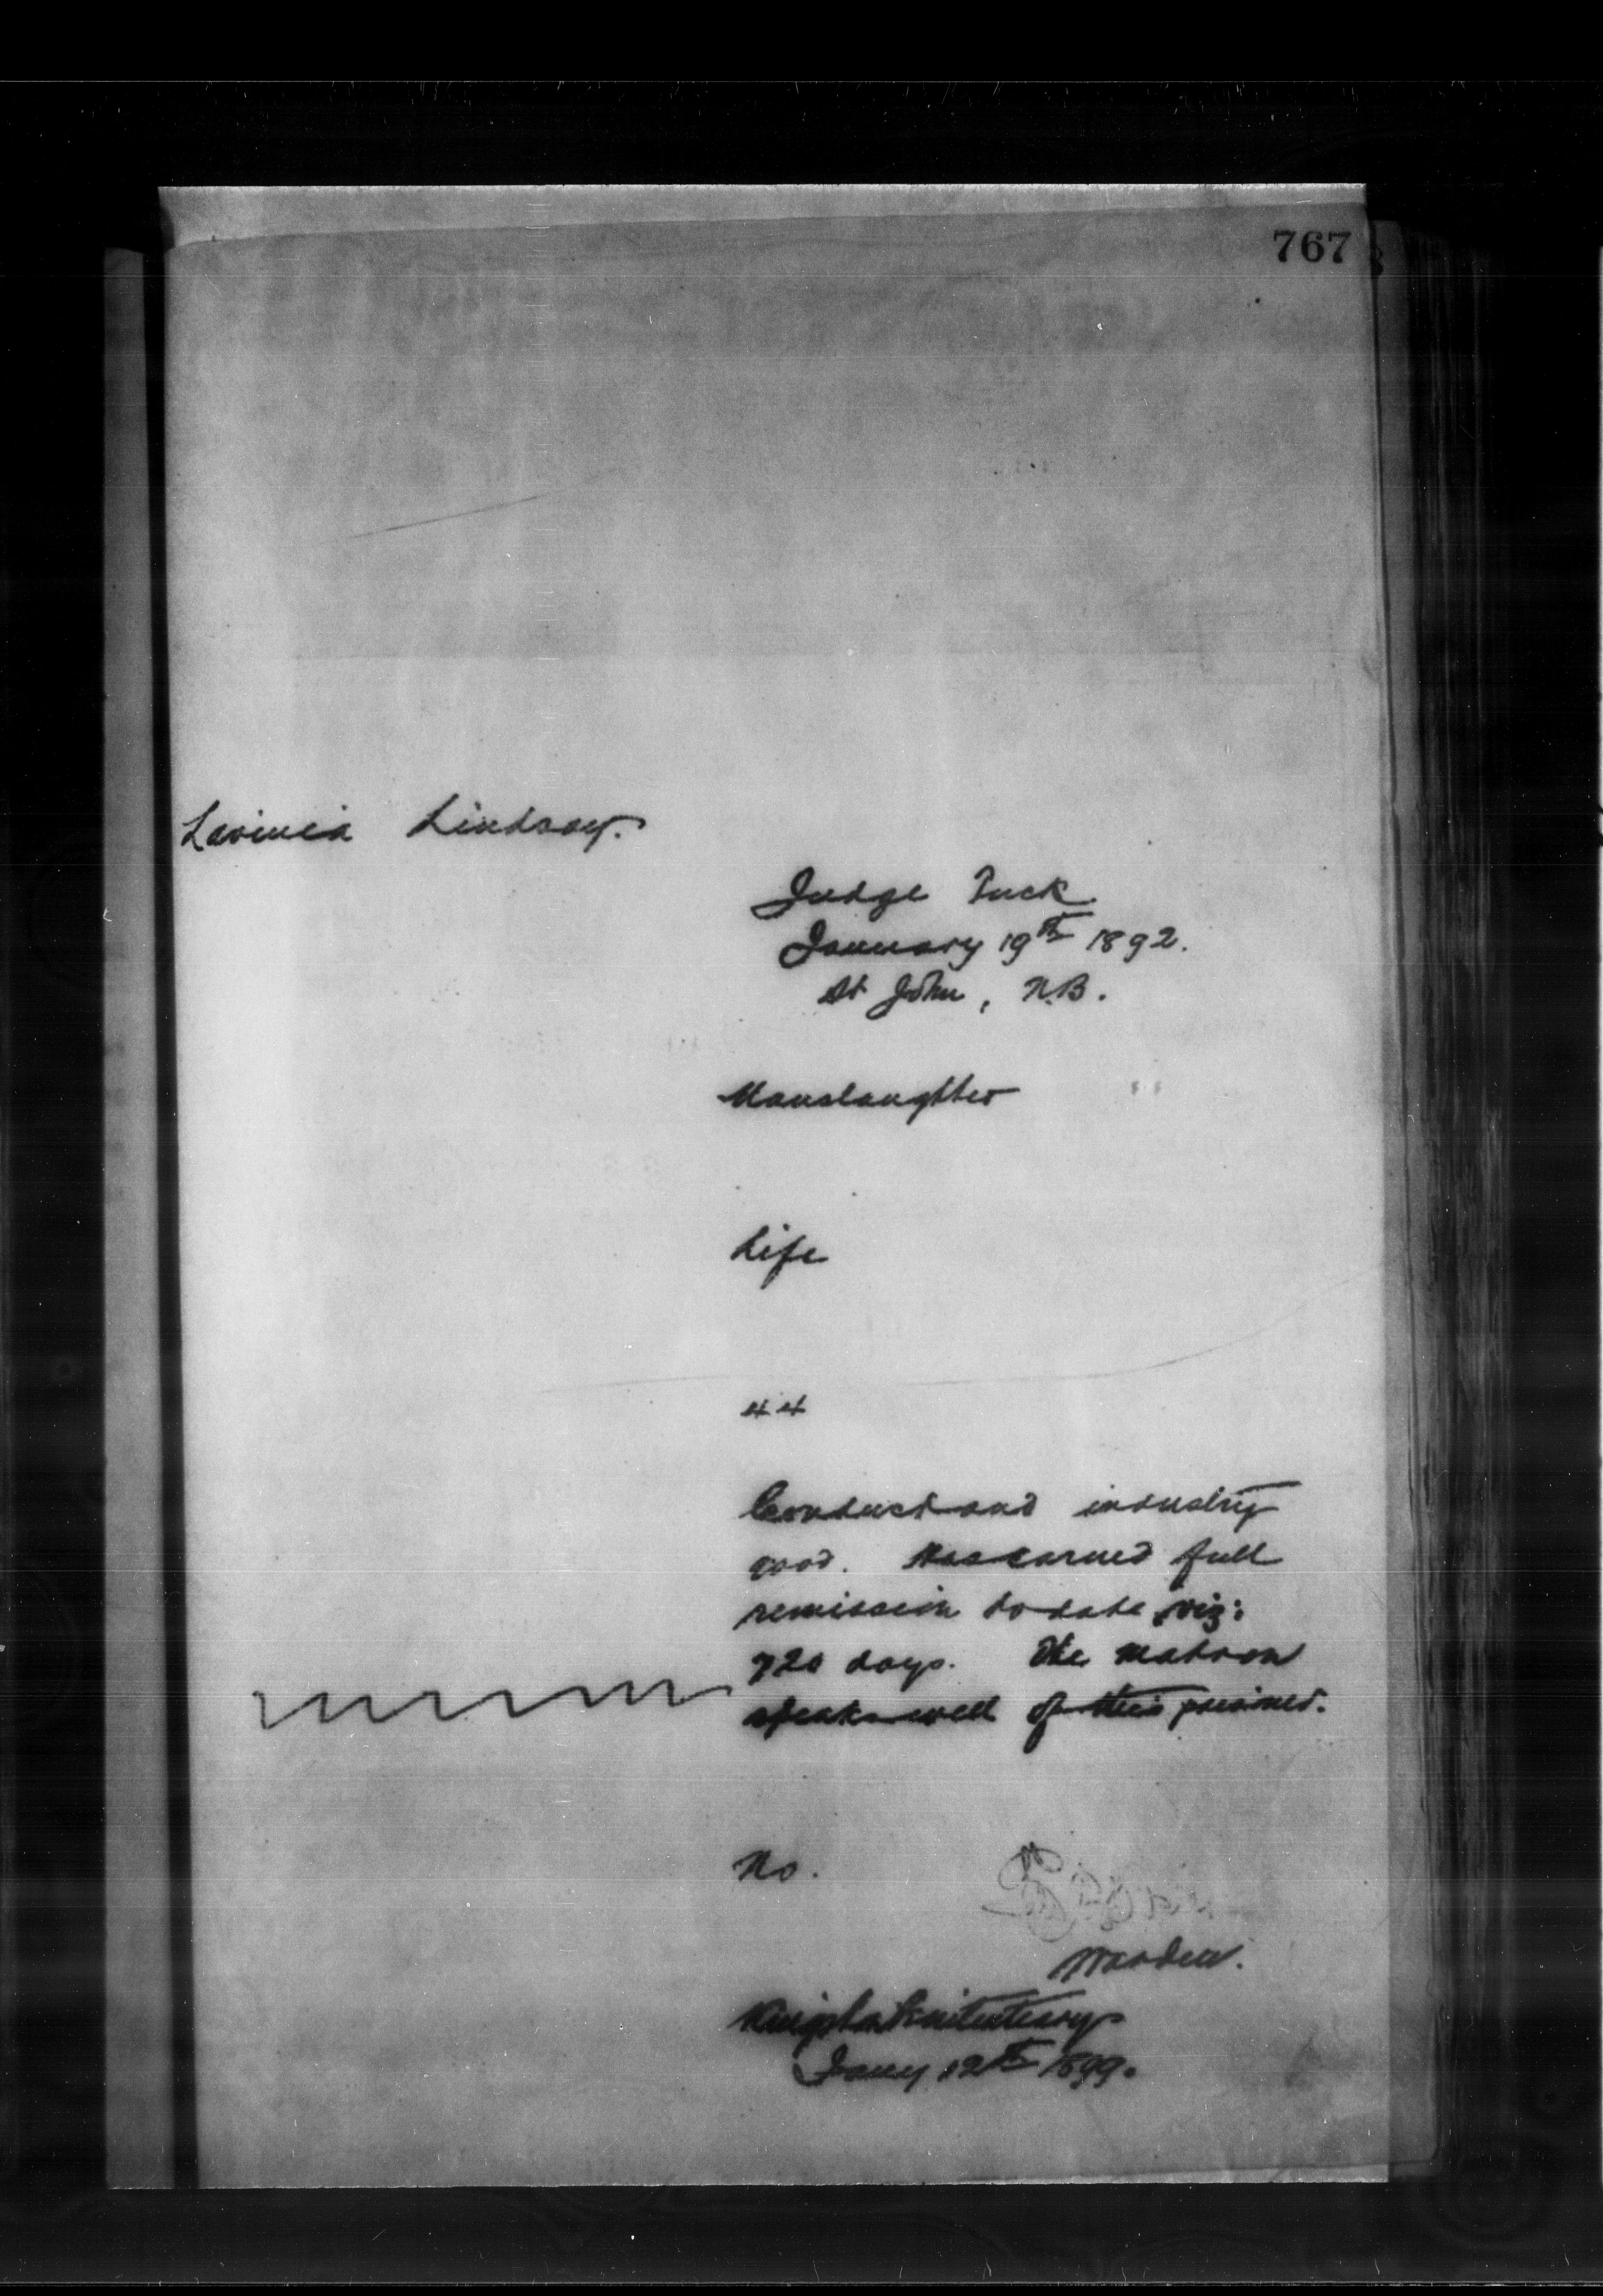 767
Lavinia Lindsay.
Judge Tuck
January 19th 1892.
St John, N.B.
Manslaughter
Life
44
Conduct and industry
good. Has earned full
remission to date, viz:
720 days. The Matron
speaks well of this prisoner.
No.
Warden.
Kingston Penitentiary
Jany 12th 1899.